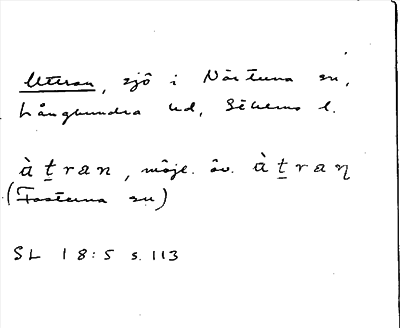 Uttran, sjö i Närtuna sn,
Långhundra hd, Sthlms l.
àt̲ran, möjl. äv. àt̲raṇ
(Fasterna sn)
SL 18:5 s. 113